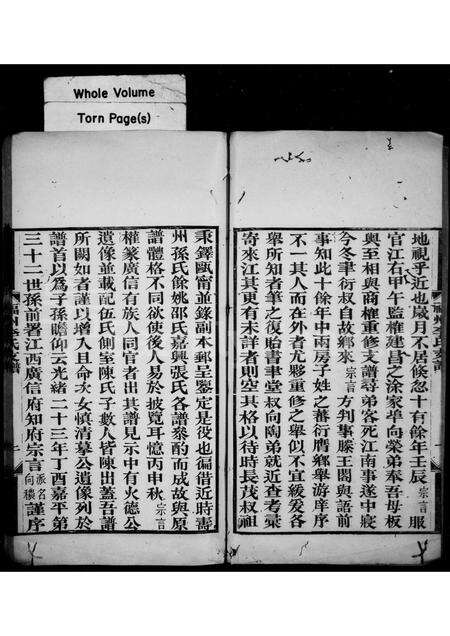 Whole Volume
Torn Page(s)
地視乎近也歲月不居倏忽十有餘年壬辰宗言服
官江右甲午監榷建昌之涂家阜向榮弟奉吾母板
輿至相與商榷重修支譜尋弟客死江南事遂中寢
今冬聿衍叔自故鄉來宗言方判事滕王閣與語前
事知此十餘年中兩房子姓之蕃衍膺鄉舉游庠序
不一其人而在外者尤夥重修之舉似不宜緩爰各
舉所知者筆之復貽書聿堂叔向陶弟就近查考彙
寄來江其更有未詳者則空其格以待時長茂叔祖
秉鐸甌甯並錄副本郵呈鑒定是役也徧借近時壽
州孫氏餘姚邵氏嘉興張氏各譜參酌而成故與原
譜體格不同欲使後人易於披覽耳憶丙申秋宗言
權篆廣信有族人同官者出其譜見示中有火德公
遺像並載配伍氏側室陳氏子數人皆陳出蓋吾譜
所闕如者謹以增入且命次女慎清摹公遺像列於
譜首以為子孫瞻仰云光緒二十三年丁酉嘉平第
三十二世孫前署江西廣信府知府宗言派名向穠謹序